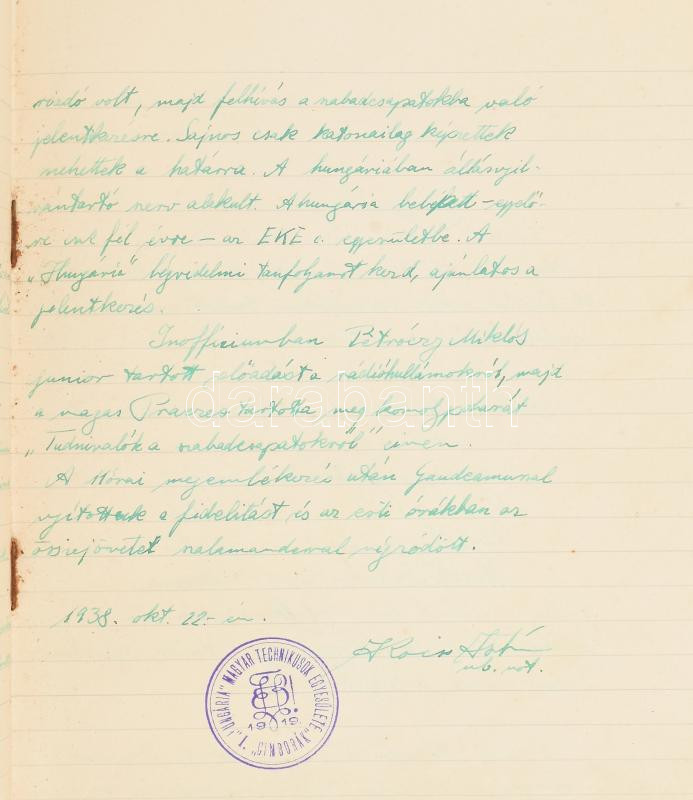 volt, majd felhívás a szabadcsapatokba való
jelentkezésre. Sajnos csak katonailag képzettek
mehettek a határra. A hungáriában állásnyil-
vántartó szerv alakult. A hungária belépett – egyelő-
re fél évre – az EKE c. egyesületbe. A
„Hungária” légvédelmi tanfolyamot kezd, ajánlatos a
jelentkezés.
Inofficiumban Pétróczy Miklós
junior tartott előadást a rádióhullámokról, majd
a magas Praeses tartotta meg komolypoharát
„Tudnivalók a szabadcsapatokról” címen.
A Hórai megemlékezés után Gaudeamussal
nyitottuk a fidelitást és az esti órákban az
összejövetel salamanderrel végződött.
1938. okt. 22-én.
"HUNGÁRIA" MAGYAR TECHNIKUSOK EGYESÜLETE
1919.
darabanth